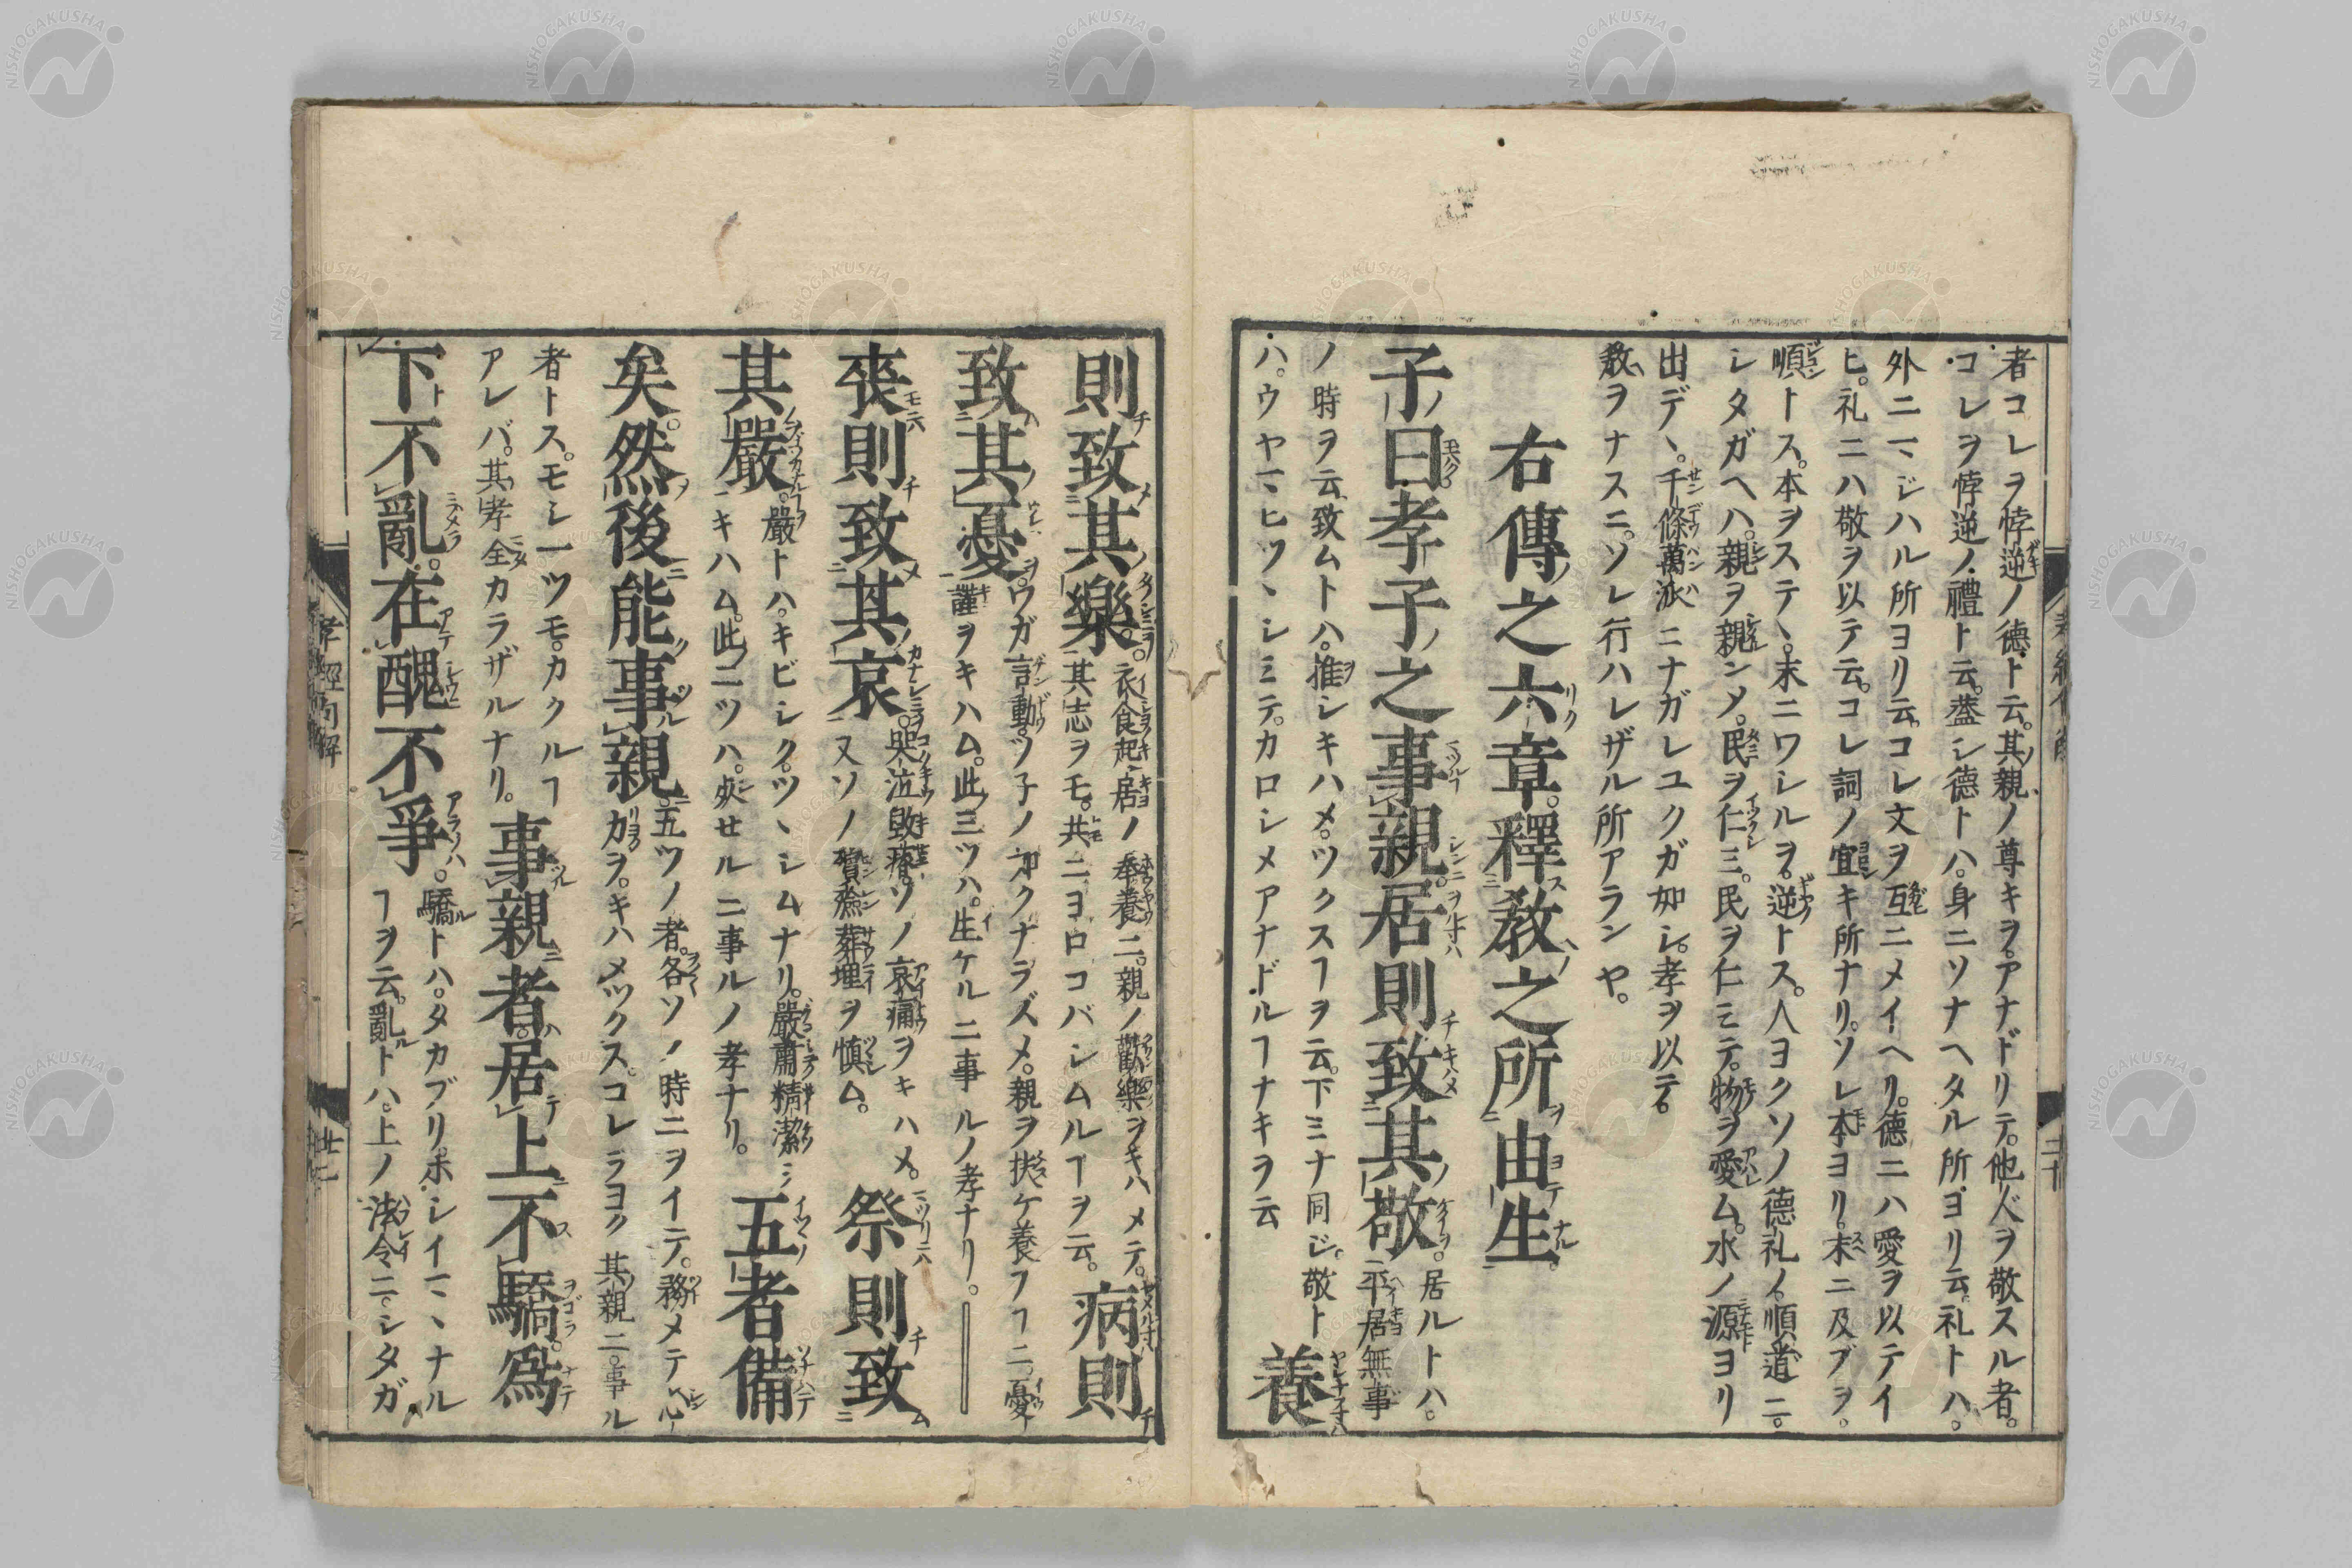 者コレヲ悖逆ノ德ト云。其親ノ尊キヲ。アナドリテ。他人ヲ敬スル者。
コレヲ悖逆ノ禮ト云。蓋シ德トハ。身ニソナヘタル所ヨリ云。礼トハ。
外ニマジハル所ヨリ云。コレ文ヲ互ニメイヘリ。德ニハ愛ヲ以テイ
ヒ。礼ニハ敬ヲ以テ云。コレ詞ノ宜キ所ナリ。ソレ本ヨリ。末ニ及ブヲ。
順トス。本ヲステヽ。末ニワシルヲ。逆トス。人ヨクソノ德礼ノ。順道ニ。
シタガヘハ。親ヲ親シンメ。民ヲ仁ミ。民ヲ仁ミテ。物ヲ愛ム。水ノ源ヨリ
出デヽ。千條萬派ニナガレユクガ如シ。孝ヲ以テ。
教ヲナスニ。ソレ行ハレザル所アランヤ。
右傳之六章。釋教之所由生。
子曰孝子之事親。居則致其敬。居ルトハ。平居無事
ノ時ヲ云。致ムトハ。推シキハメ。ツクスヿヲ云。下ミナ同ジ。敬ト
ハ。ウヤマヒツヽシミテ。カロシメアナドルヿナキヲ云 養
則致其樂。衣食起居ノ奉養ニ。親ノ歡樂ヲキハメテ。其志ヲモ。共ニヨロコバシムルヿヲ云。病則
致其憂。ウガ言動。ツ子ノ如クナラズメ。親ヲ扶ケ養フヿニ。憂謹ヲキハム。此三ツハ。生ケルニ事ルノ孝ナリ。
喪則致其哀。哭泣毀瘠。ソノ哀痛ヲキハメ。又ソノ殯斂葬埋ヲ慎ム。祭則致
其嚴。嚴トハ。キビシク。ツヽシムナリ。嚴肅精潔ミキハム。此二ツハ。死セルニ事ルノ孝ナリ。五者備
矣。然後能事親。五ツノ者。各ソノ時ニヲイテ。務メテ心力ヲ。キハメツクス。コレラヨク其親ニ。事ル
者トス。モシ一ツモ。カクルヿアレバ。其孝全カラザルナリ。事親者。居上不驕。爲
下不亂。在醜不爭。驕トハ。タカブリホシイマヽナルヿヲ云。亂トハ。上ノ法令ニ。シタガ
孝經句解
廿一